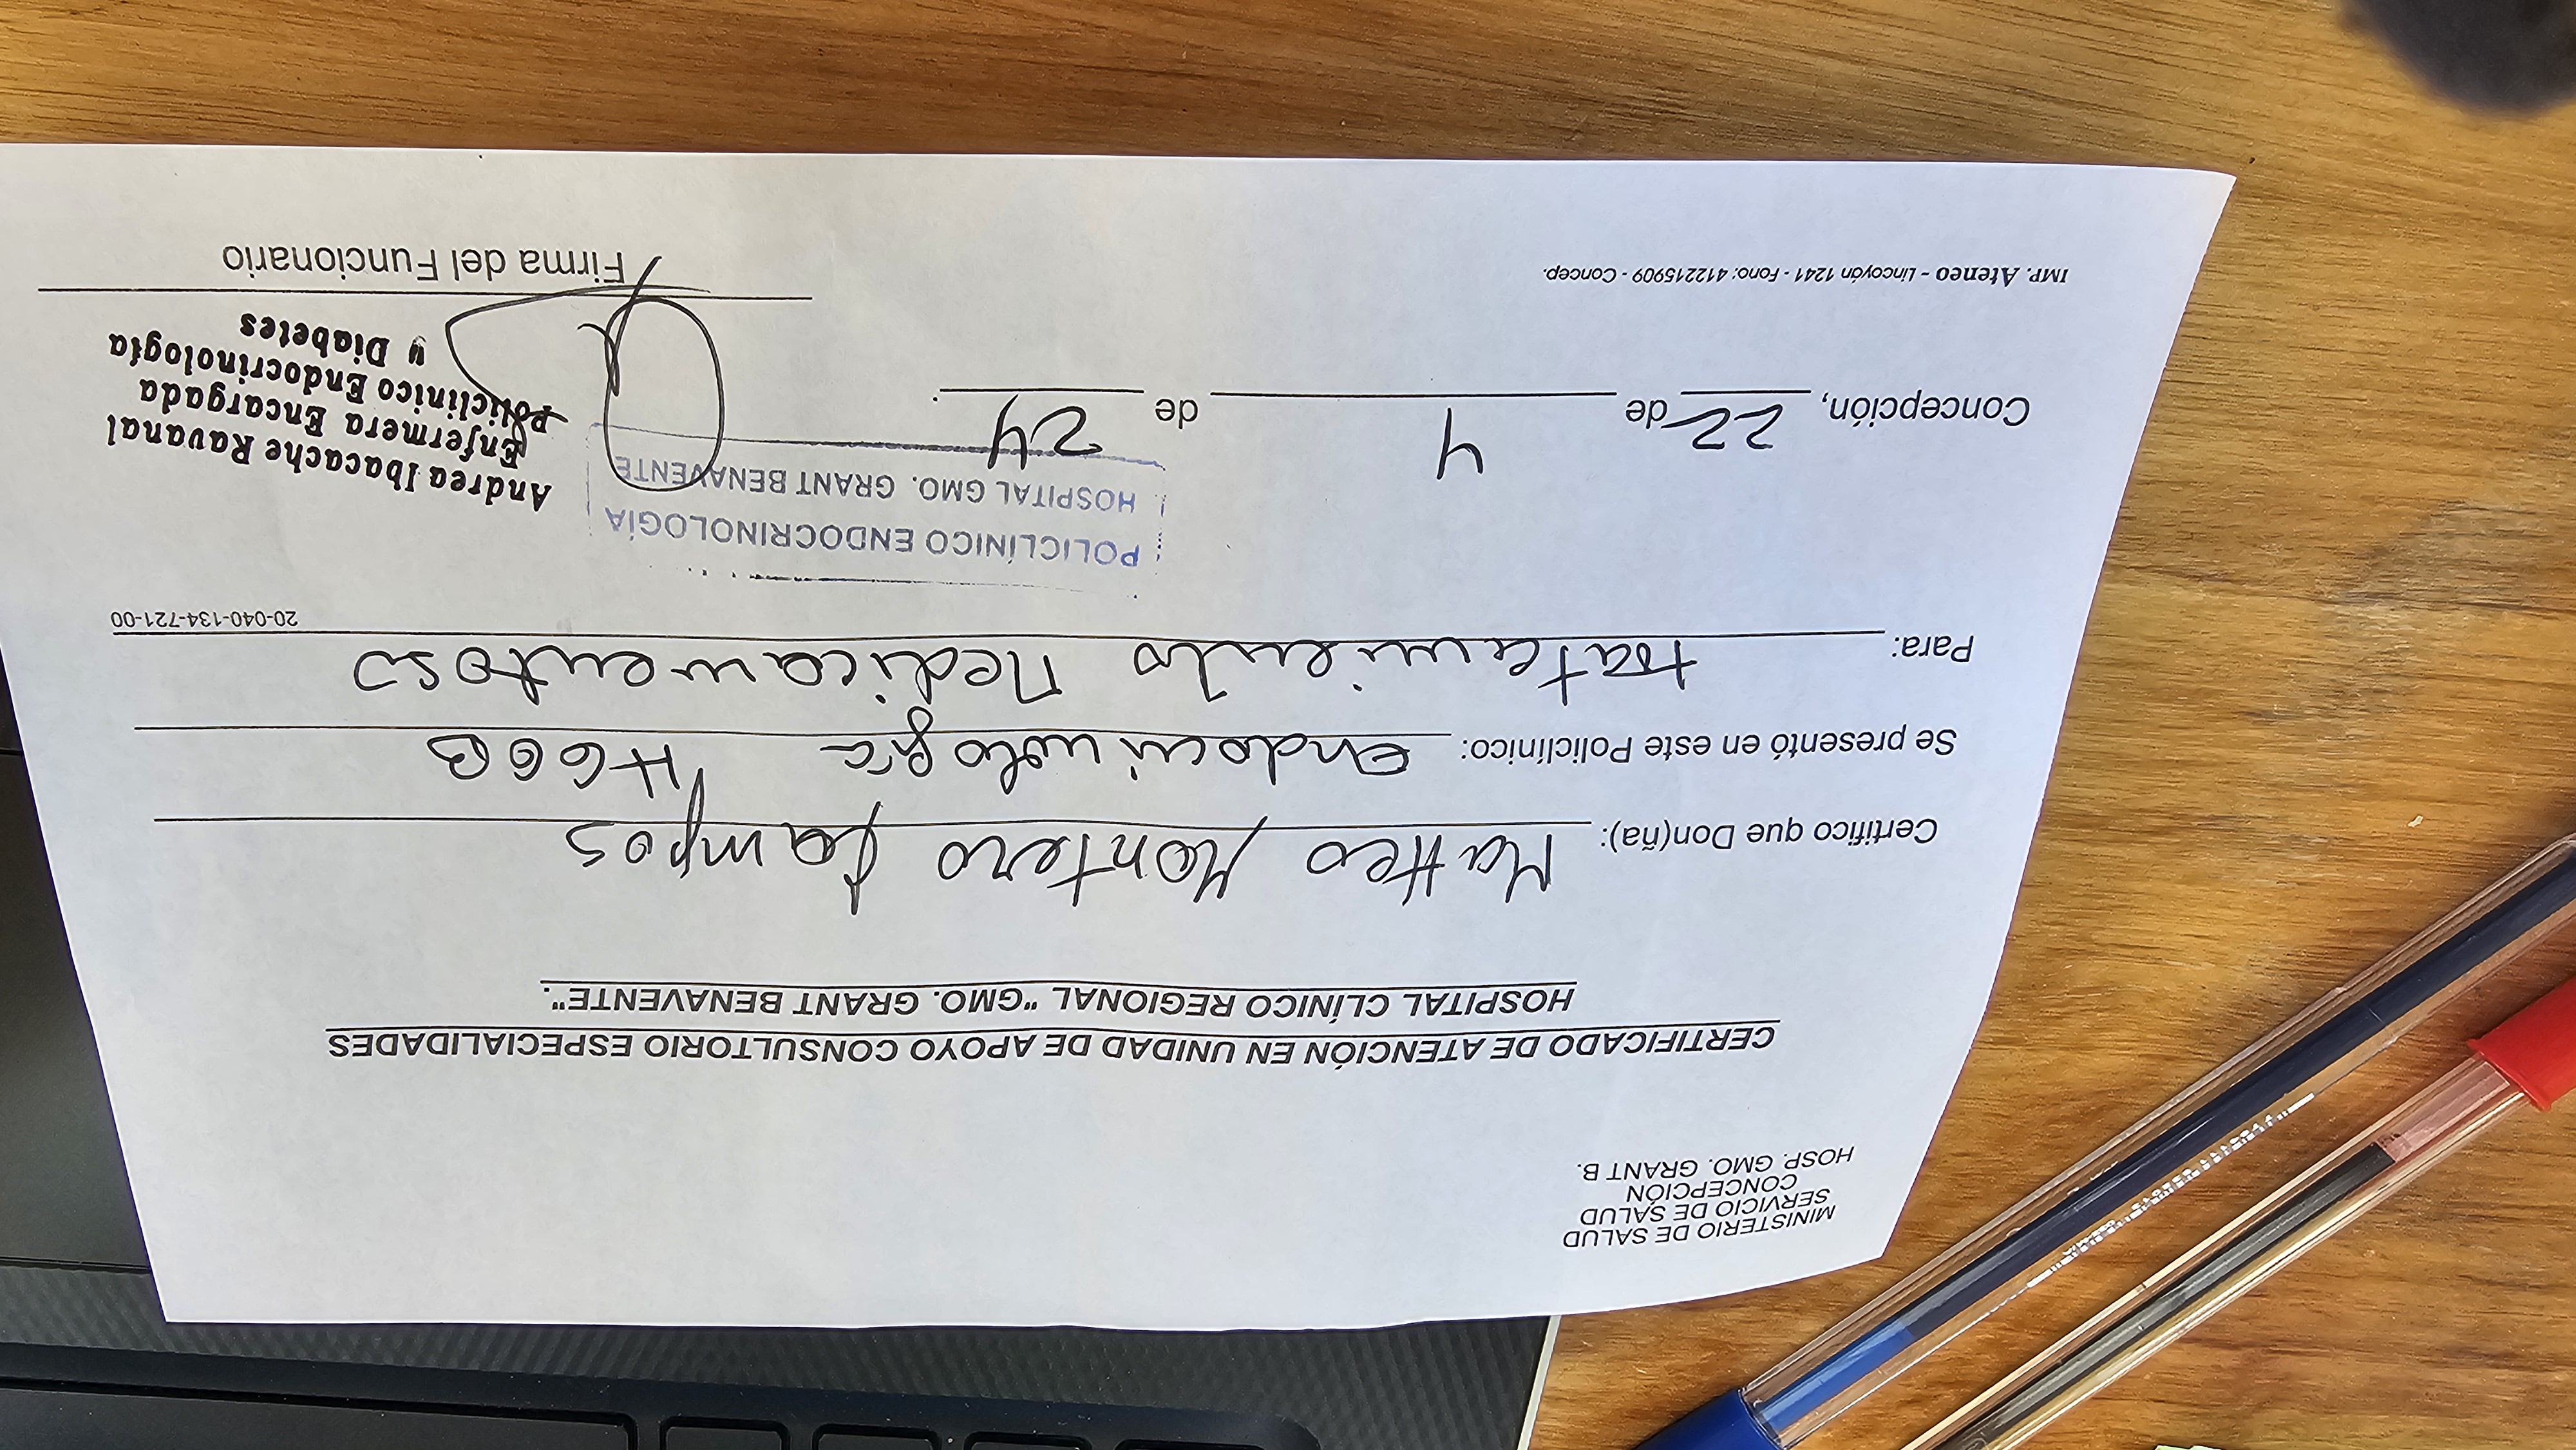 MINISTERIO DE SALUD
SERVICIO DE SALUD
CONCEPCIÓN
HOSP. GMO. GRANT B.
CERTIFICADO DE ATENCIÓN EN UNIDAD DE APOYO CONSULTORIO ESPECIALIDADES
HOSPITAL CLÍNICO REGIONAL "GMO. GRANT BENAVENTE".
Certifico que Don(ña): Matteo Montero Campos
Se presentó en este Policlínico: endocrinología HGGB
Para: tratamiento medicamentoso
20-040-134-721-00
POLICLÍNICO ENDOCRINOLOGÍA
HOSPITAL GMO. GRANT BENAVENTE
Concepción, 22 de 4 de 24.
Andrea Ibacache Ravanal
Enfermera Encargada
Policlínico Endocrinología
y Diabetes
Firma del Funcionario
IMP. Ateneo - Lincoyán 1241 - Fono: 412215909 - Concep.